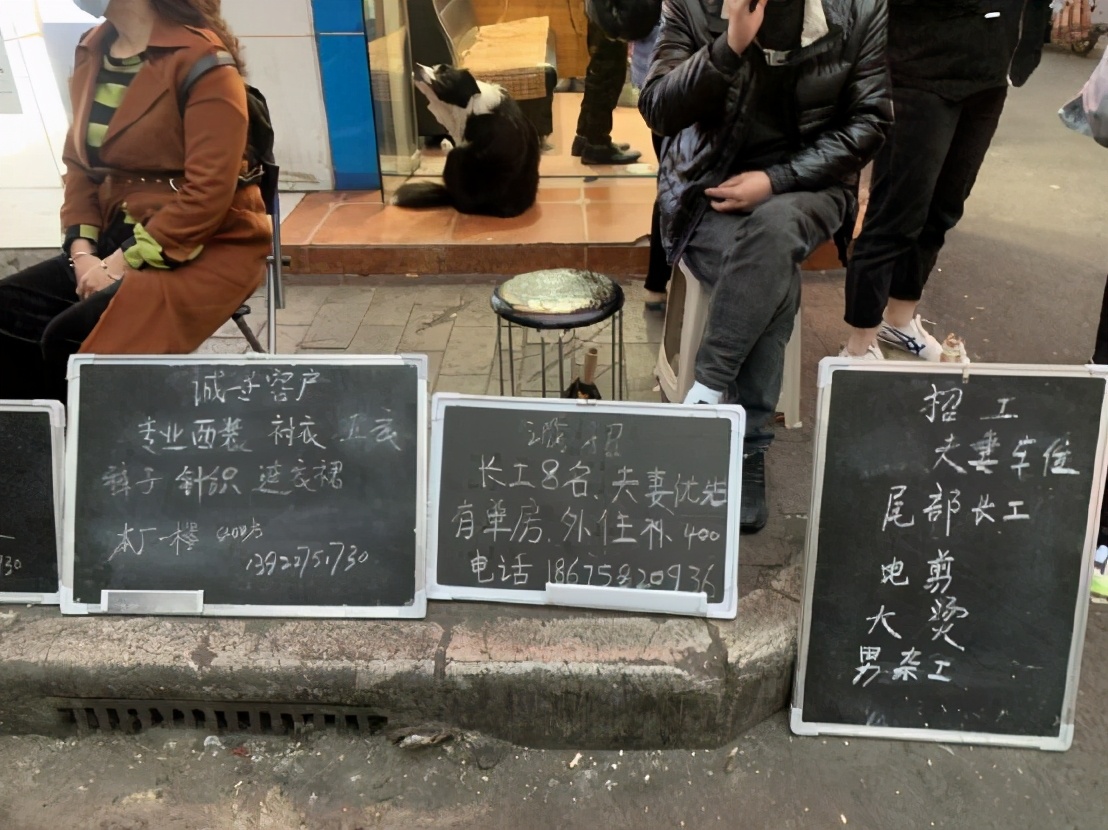 30
诚 客户
专业西装 衬衣
裤子 针织 连衣裙
本厂一楼
诚招
长工8名、夫妻优先
有单房.外住补400
电话 18675820936
招工
夫妻车位
尾部长工
电剪
大烫
男杂工